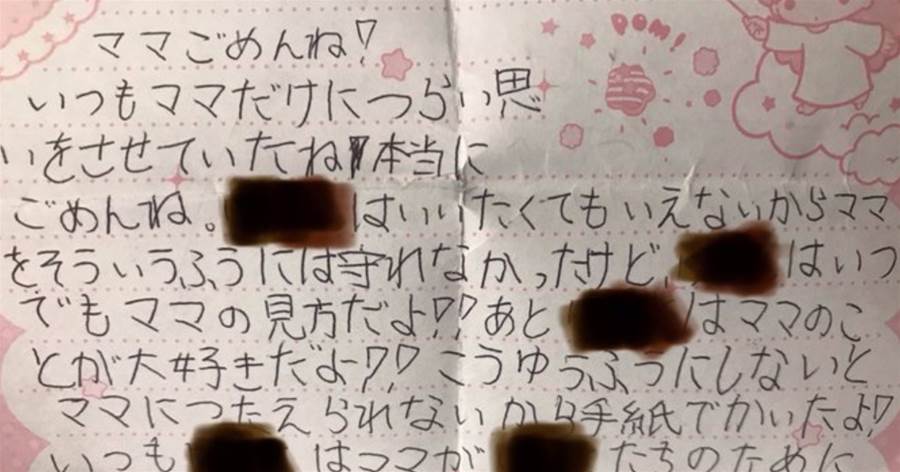 POM!
ママごめんね!
いつもママだけにつらい思
いをさせていたね!本当に
ごめんね。はいいたくてもいえないからママ
をそういうふうには守れなかったけど、はいつ
でもママの見方だよ!!あとはママのこ
とが大好きだよ!!こうゆうふうにしないと
ママにつたえられないから手紙でかいたよ!
いつもはママがたちのために